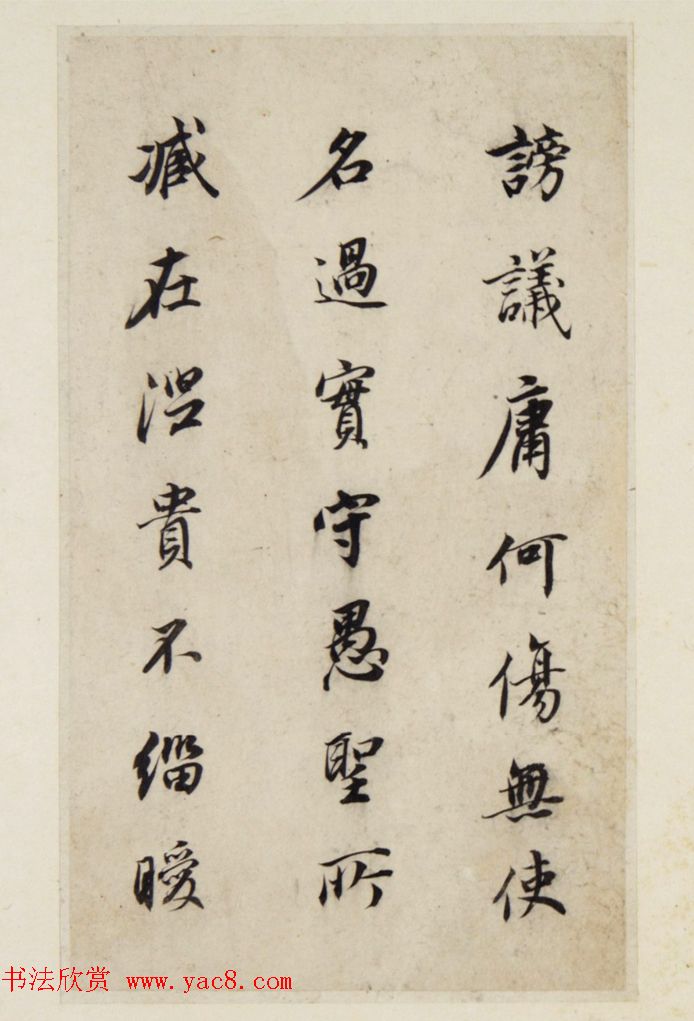 謗議庸何傷無使
名過實守愚聖所
臧在涅貴不緇曖
书法欣赏 www.yac8.com